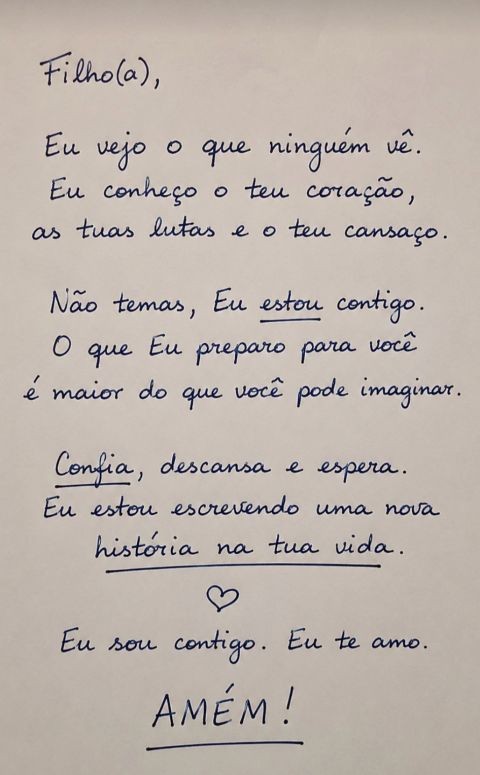 Filho(a),
Eu vejo o que ninguém vê.
Eu conheço o teu coração,
as tuas lutas e o teu cansaço.
Não temas, Eu estou contigo.
O que Eu preparo para você
é maior do que você pode imaginar.
Confia, descansa e espera.
Eu estou escrevendo uma nova
história na tua vida.
♡
Eu sou contigo. Eu te amo.
AMÉM!